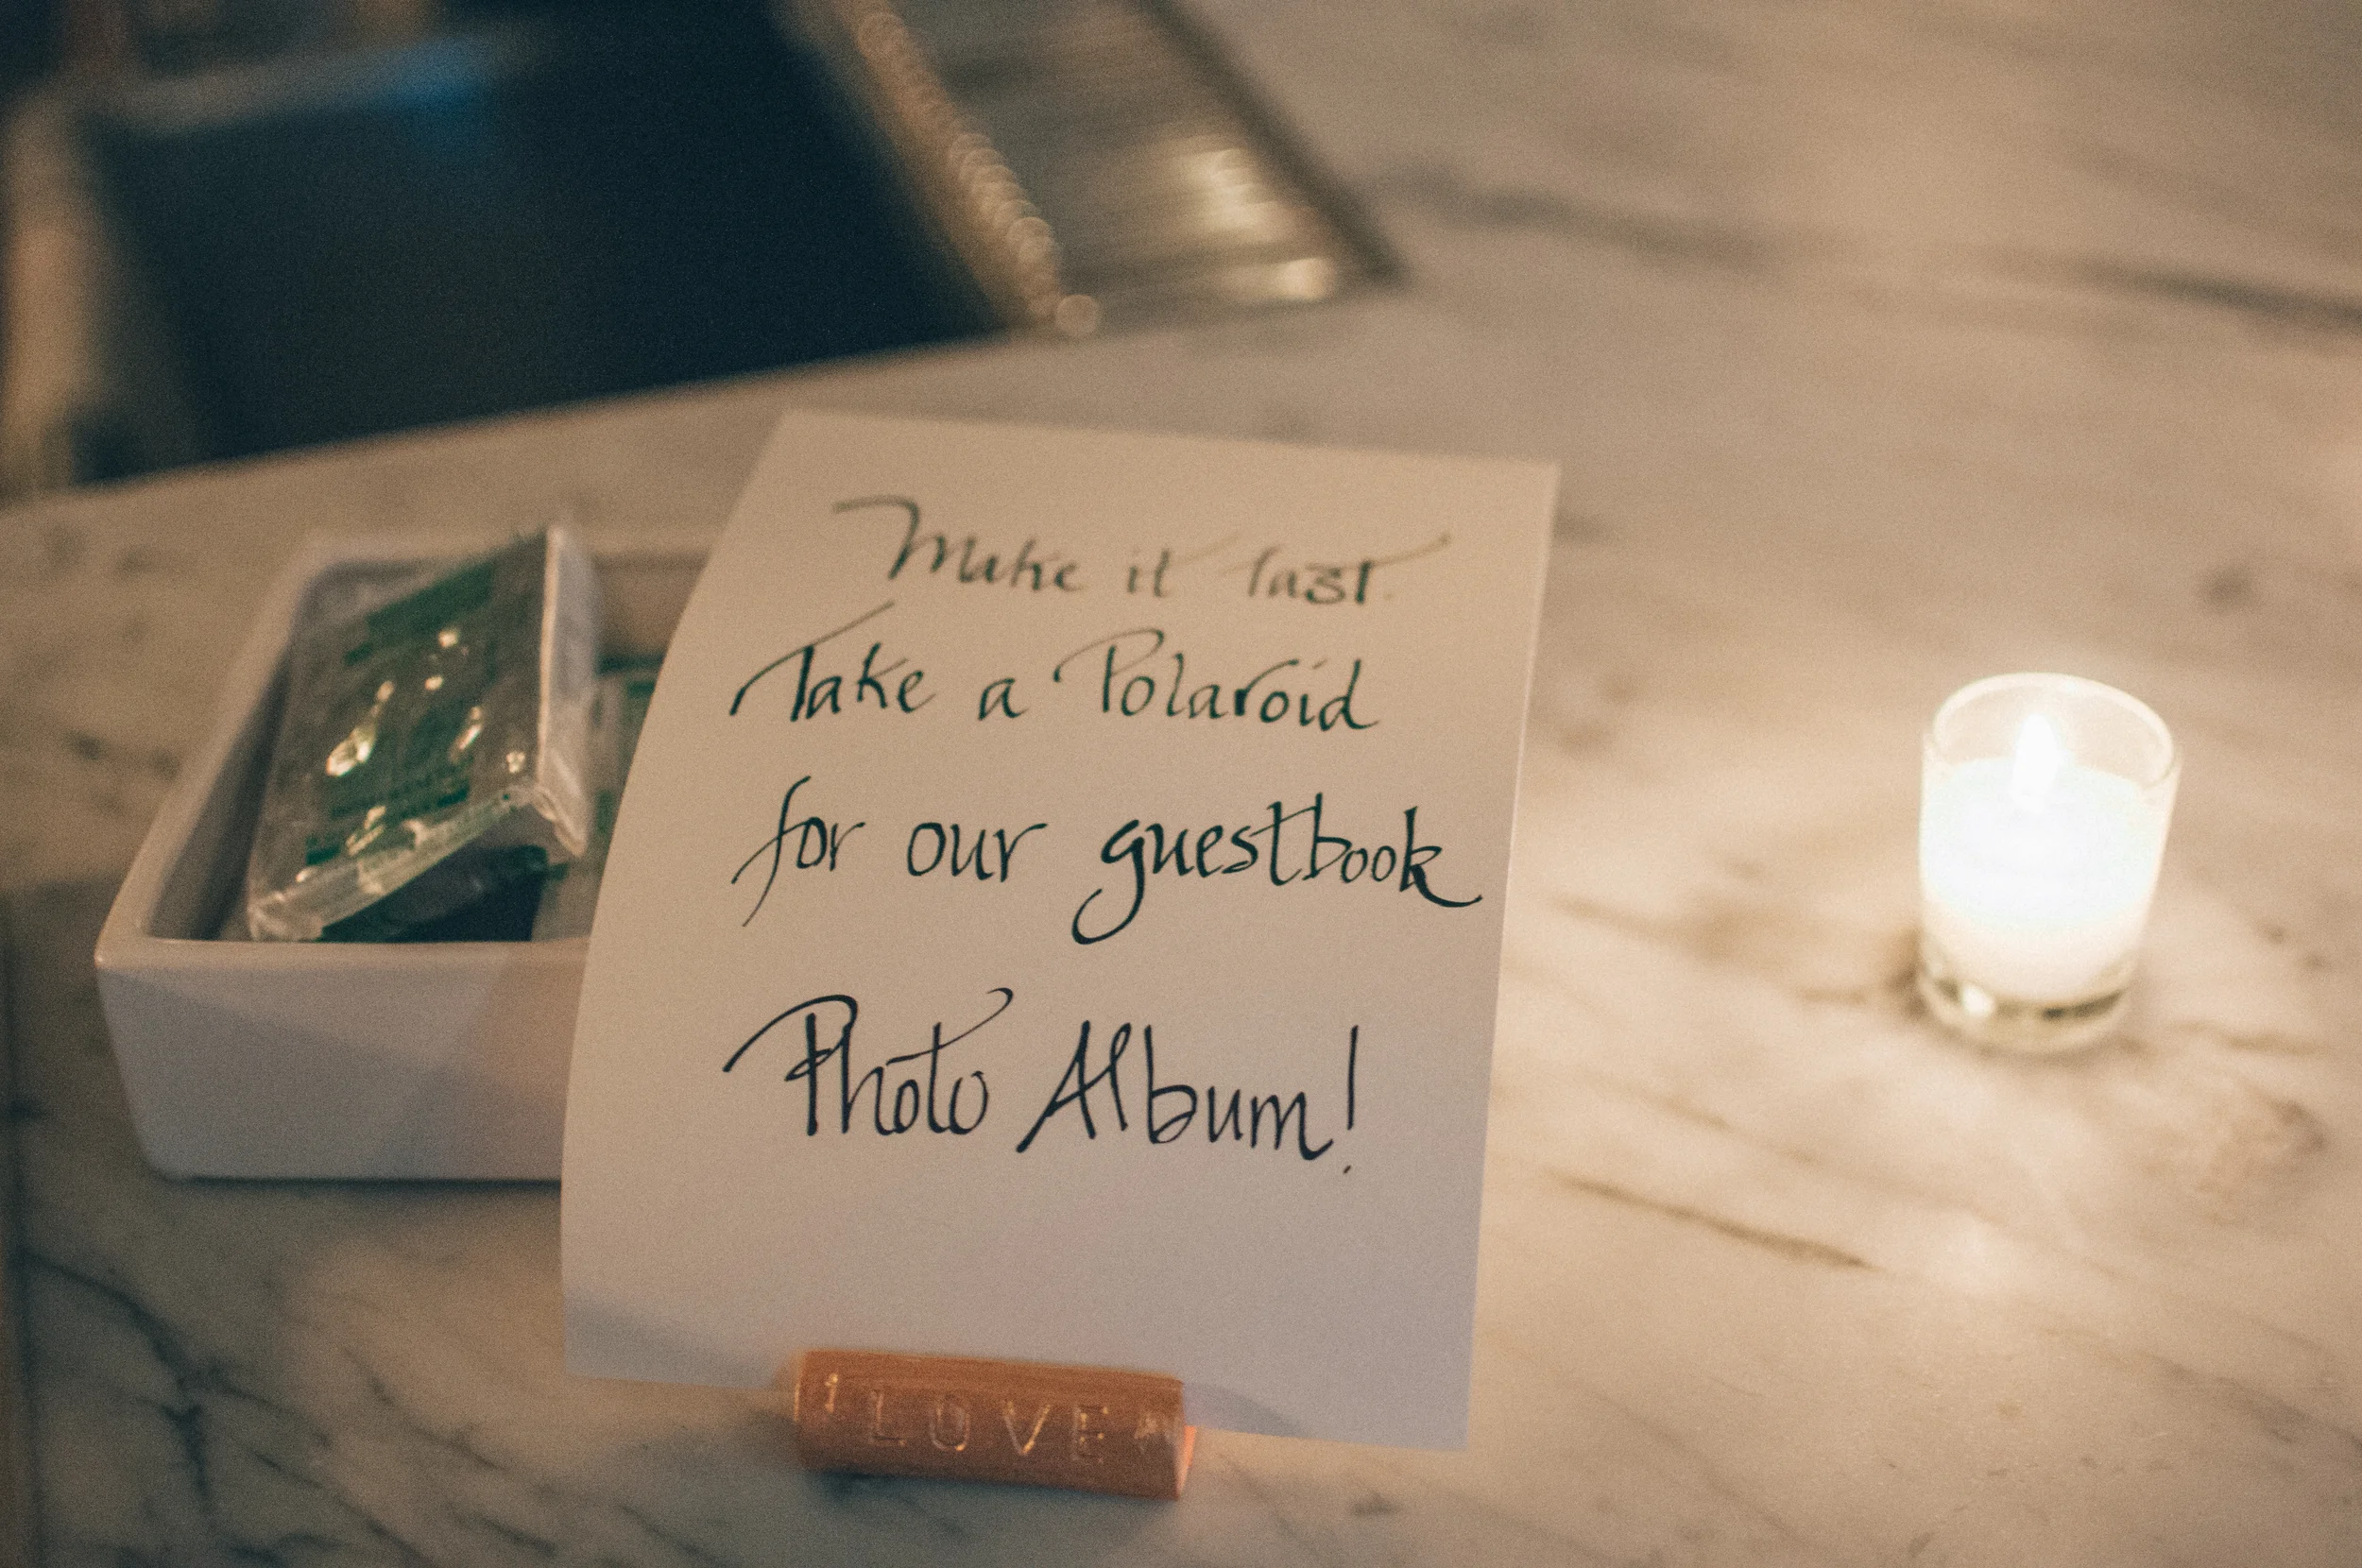 Make it last.
Take a Polaroid
for our guestbook
Photo Album!
LOVE